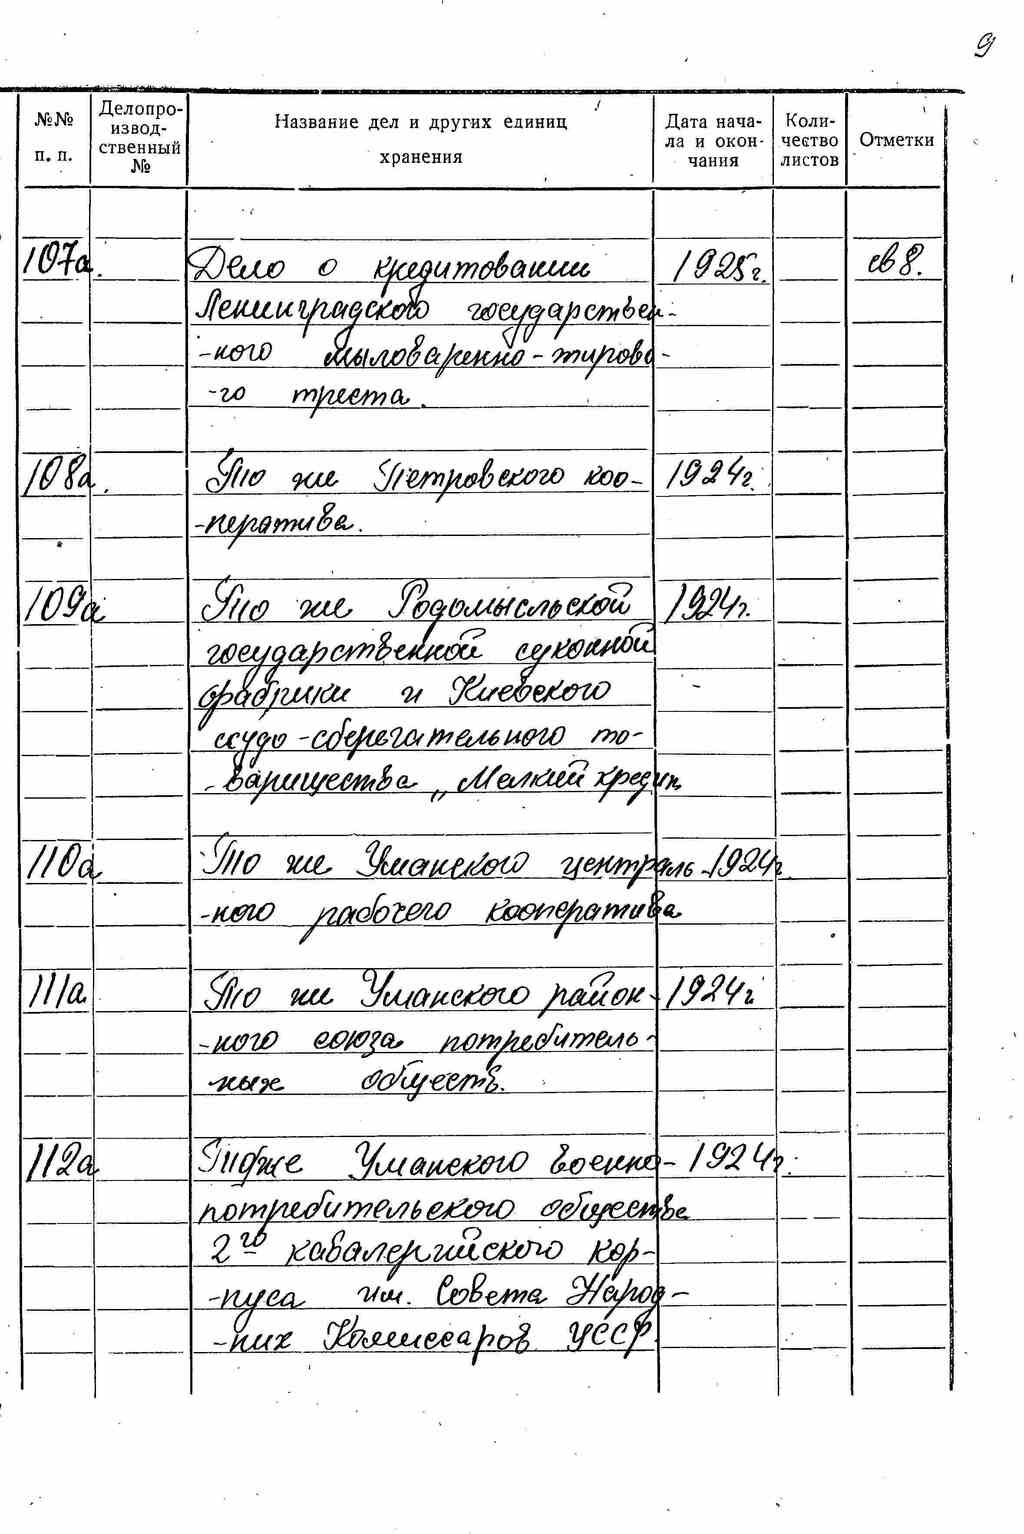 9
№№ п. п. Делопро-извод-ственный № Название дел и других единиц хранения Дата нача-ла и окон-чания Коли-чество листов Отметки
107а. Дело о кредитовании 1925г. св 8.
Ленинградского государствен-
-ного мыловаренно-жирово-
-го треста.
108а. То же Петровского коо- 1924г.
-ператива.
109а То же Родомысльской 1924г.
государственной суконной
фабрики и Киевского
ссудо-сберегательного то-
-варищества „Мелкий кредит
110а То же Уманского централь- 1924г
-ного рабочего кооператива
111а То же Уманского район- 1924г
-ного союза потребитель-
ных обществ.
112а То же Уманского военно- 1924г.
потребительского общества
2го кавалерийского кор-
-пуса им. Совета Народ-
-них Комиссаров УССР.